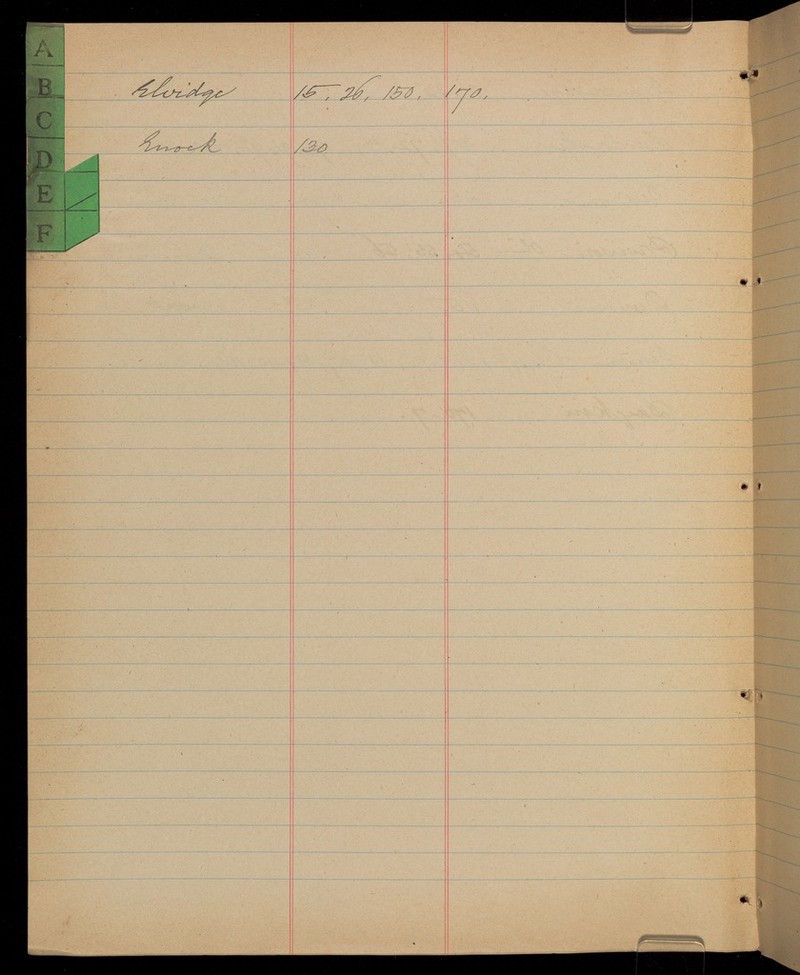 A
B
C
D
E
F
Elvidge 15, 26, 150, 170.
Enock 130